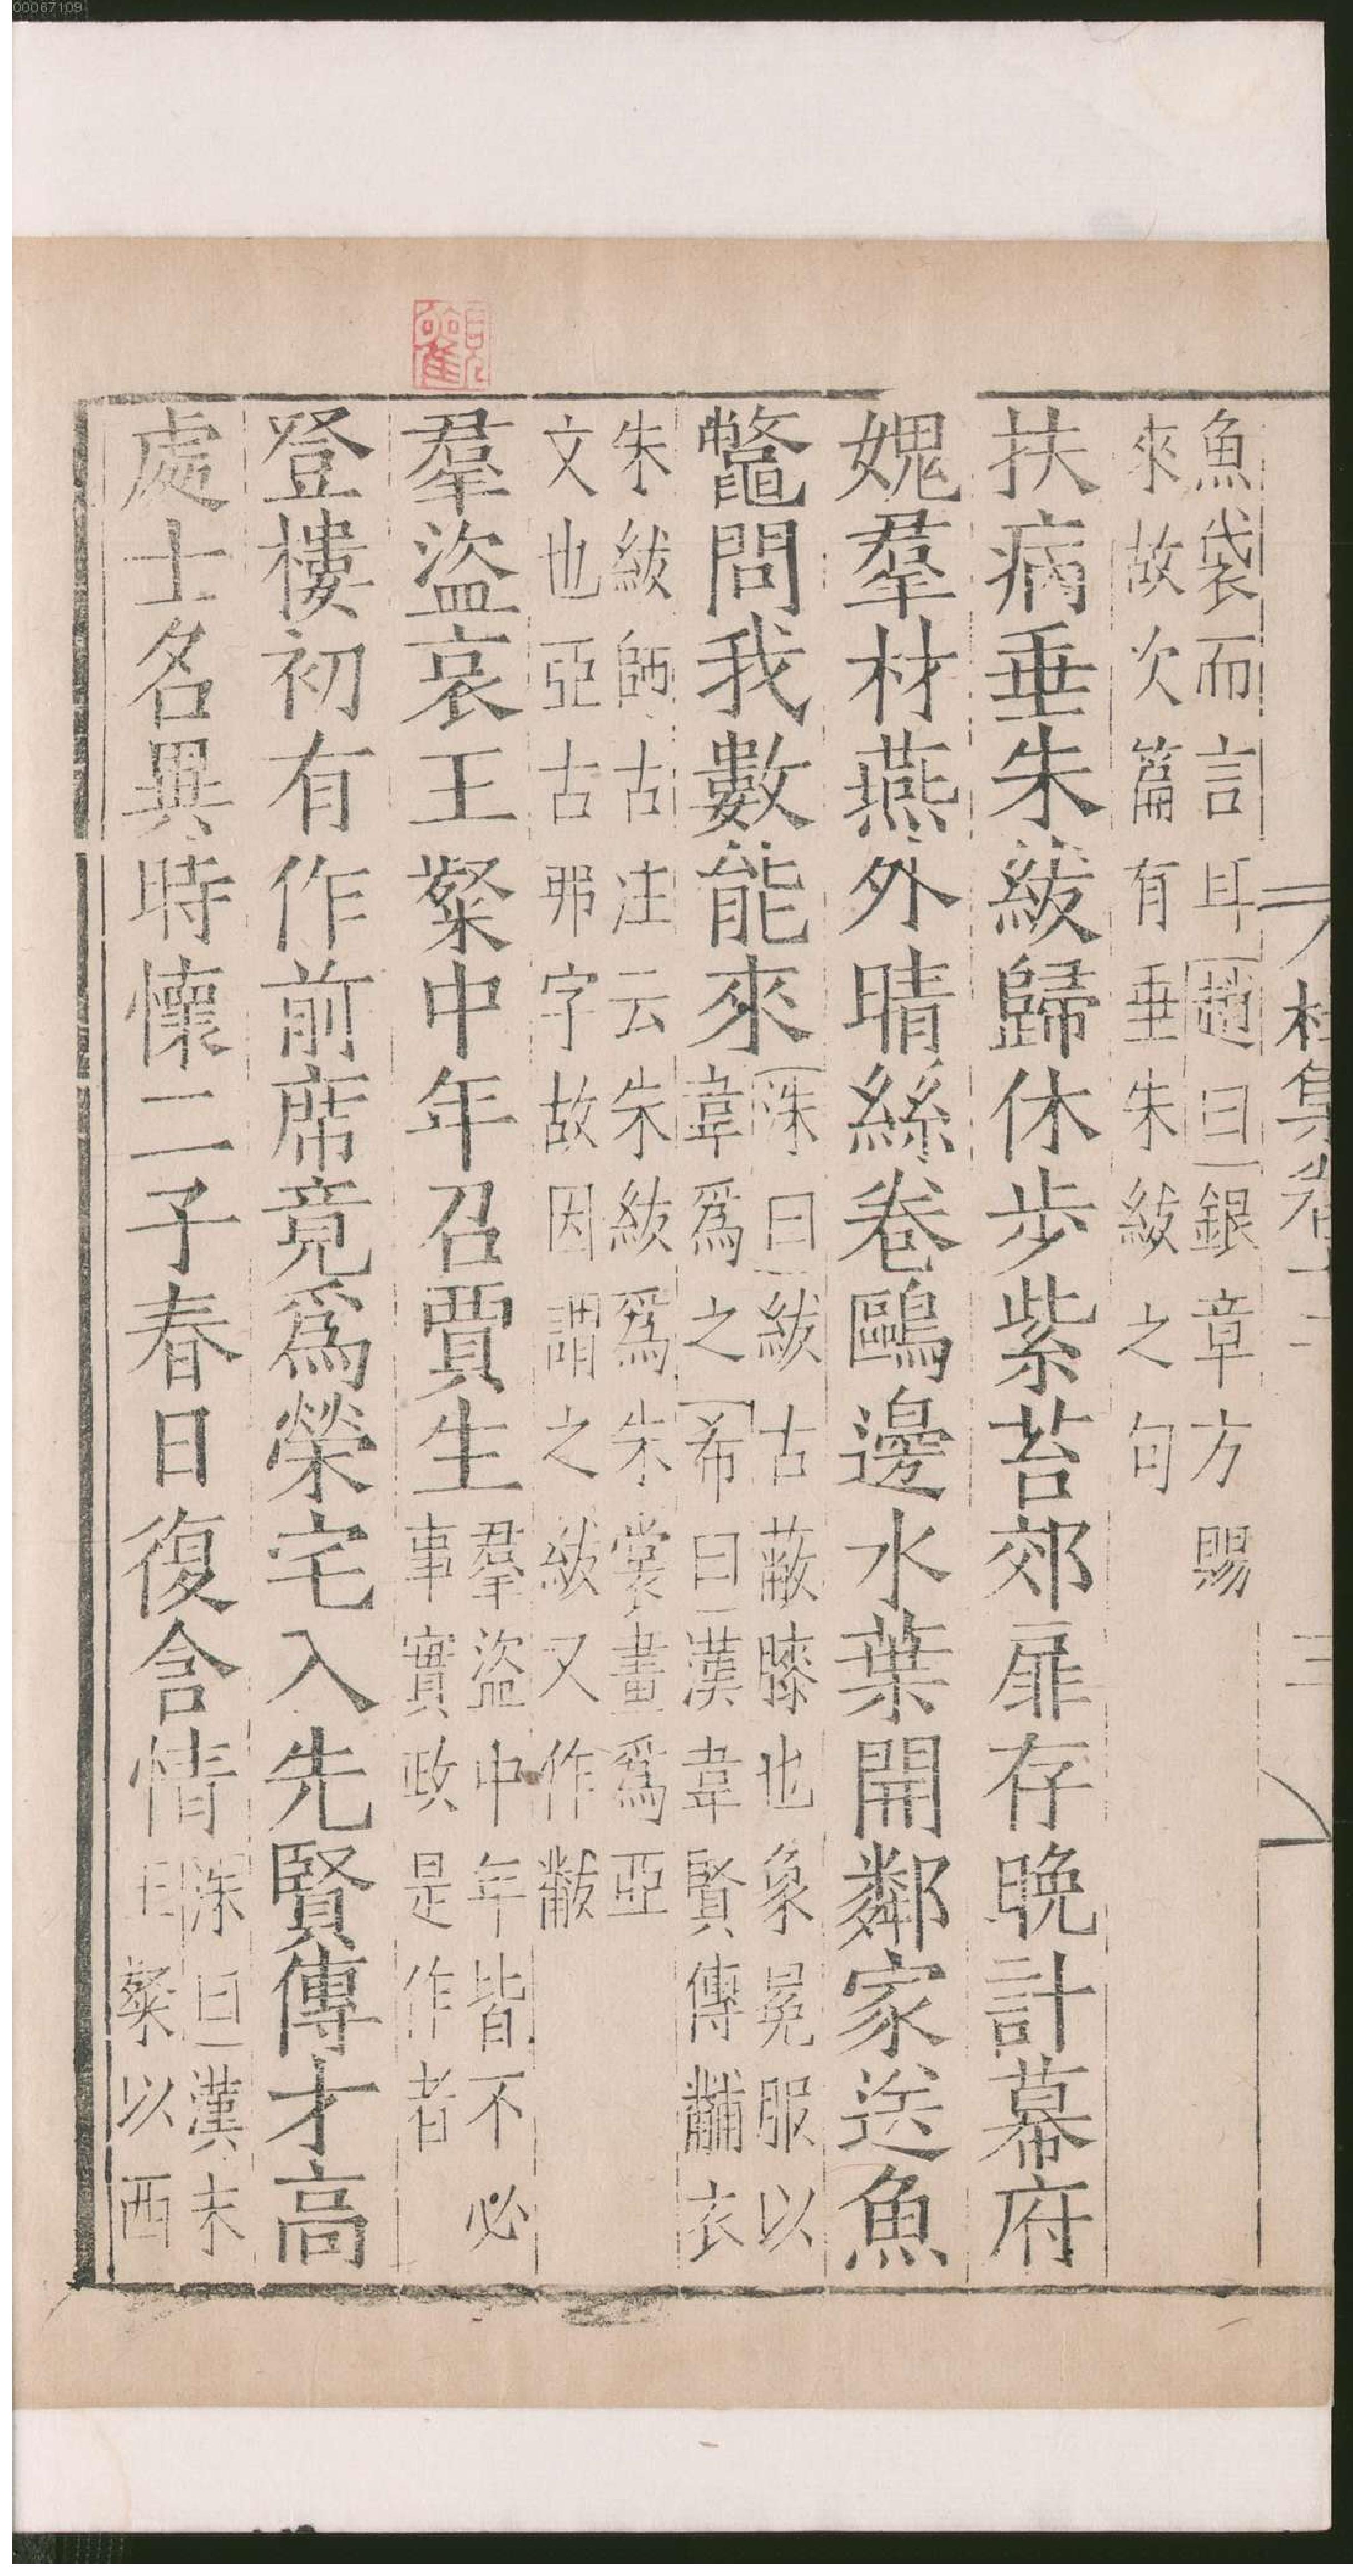 00067109
杜集卷十二
三
魚袋而言耳趙曰銀章方賜
來故次篇有垂朱紱之句
扶病垂朱紱歸休步紫苔郊扉存晚計幕府
媿羣材燕外晴絲卷鷗邊水葉開鄰家送魚
鼈問我數能來洙曰紱古蔽膝也象冕服以
韋爲之希曰漢韋賢傳黼衣
朱紱師古注云朱紱爲朱裳畫爲亞
文也亞古弗字故因謂之紱又作黻
羣盜哀王粲中年召賈生羣盜中年皆不必
事實政是作者
登樓初有作前席竟爲榮宅入先賢傳才高
處士名異時懷二子春日復含情洙曰漢末
王粲以西